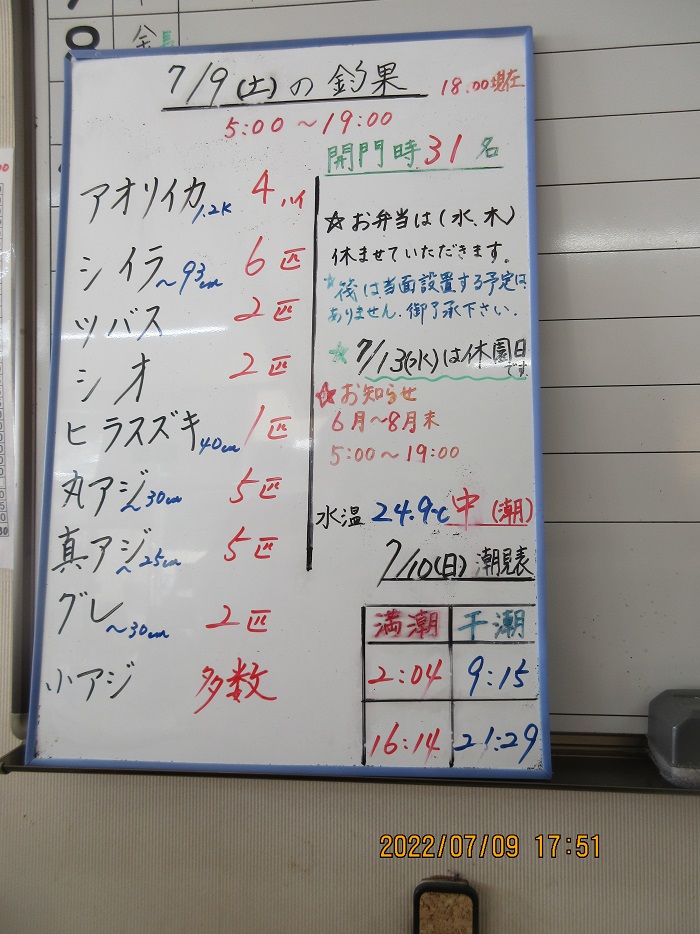 7/9(土)の釣果
18.00現在
5:00～19:00
開門時31名
アオリイカ1.2K 4ハイ
シイラ～93cm 6匹
ツバス 2匹
シオ 2匹
ヒラスズキ40cm 1匹
丸アジ～30cm 5匹
真アジ～25cm 5匹
グレ～30cm 2匹
小アジ 多数
☆お弁当は(水、木)
休ませていただきます。
☆筏は当面設置する予定は
ありません.御了承下さい.
☆7/13(水)は休園日
です
☆お知らせ
6月～8月末
5:00～19:00
水温 24.9℃ 中(潮)
7/10(日)潮見表
満潮 干潮
2:04 9:15
16:14 21:29
2022/07/09 17:51